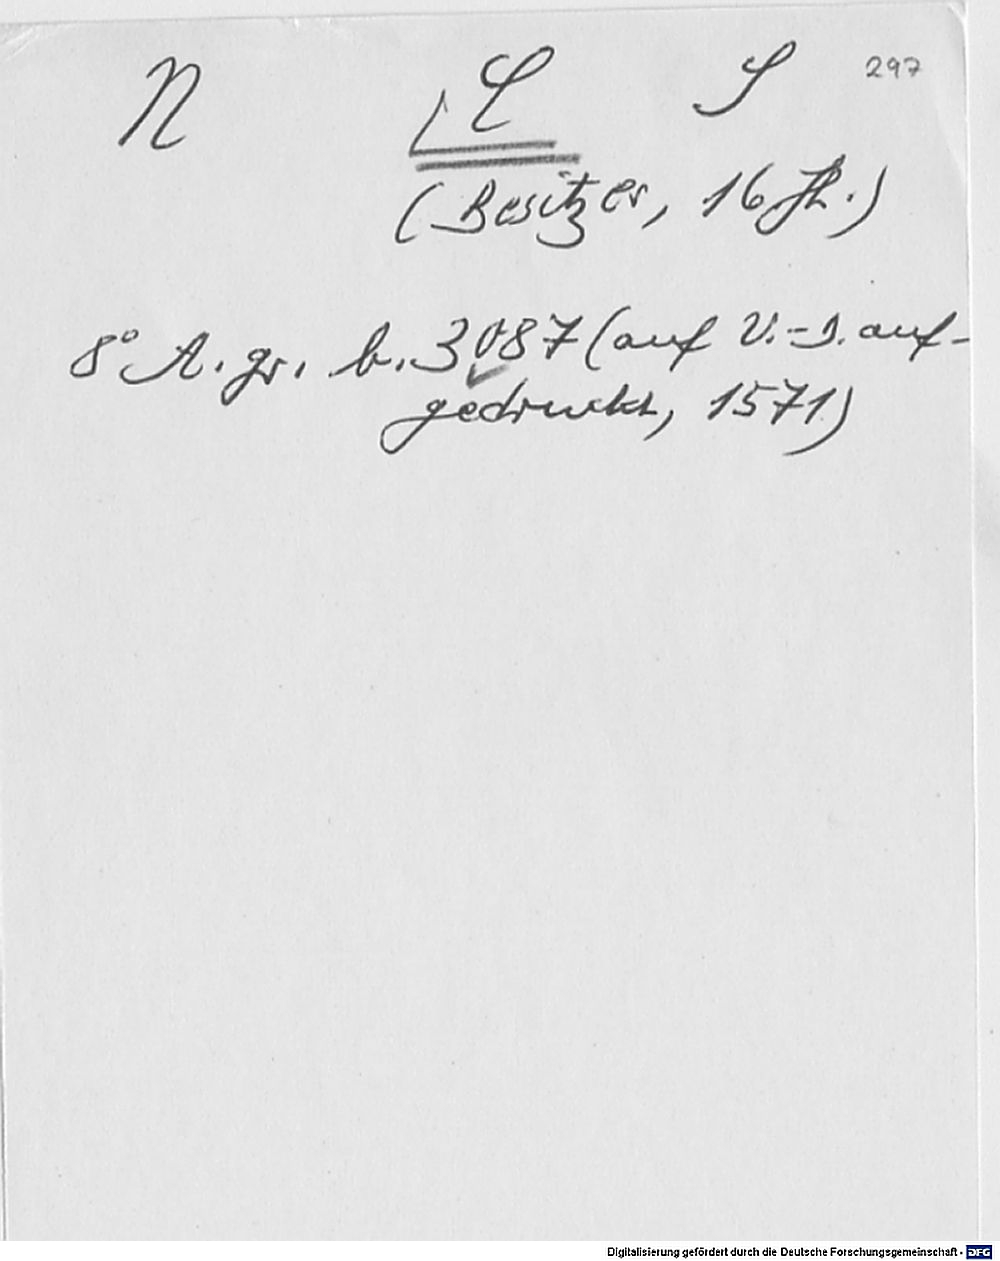 N L S 297
(Besitzer, 16 Jh.)
8° A. gr. b. 3087 (auf V.-D. auf-
gedruckt, 1571)
Digitalisierung gefördert durch die Deutsche Forschungsgemeinschaft - DFG